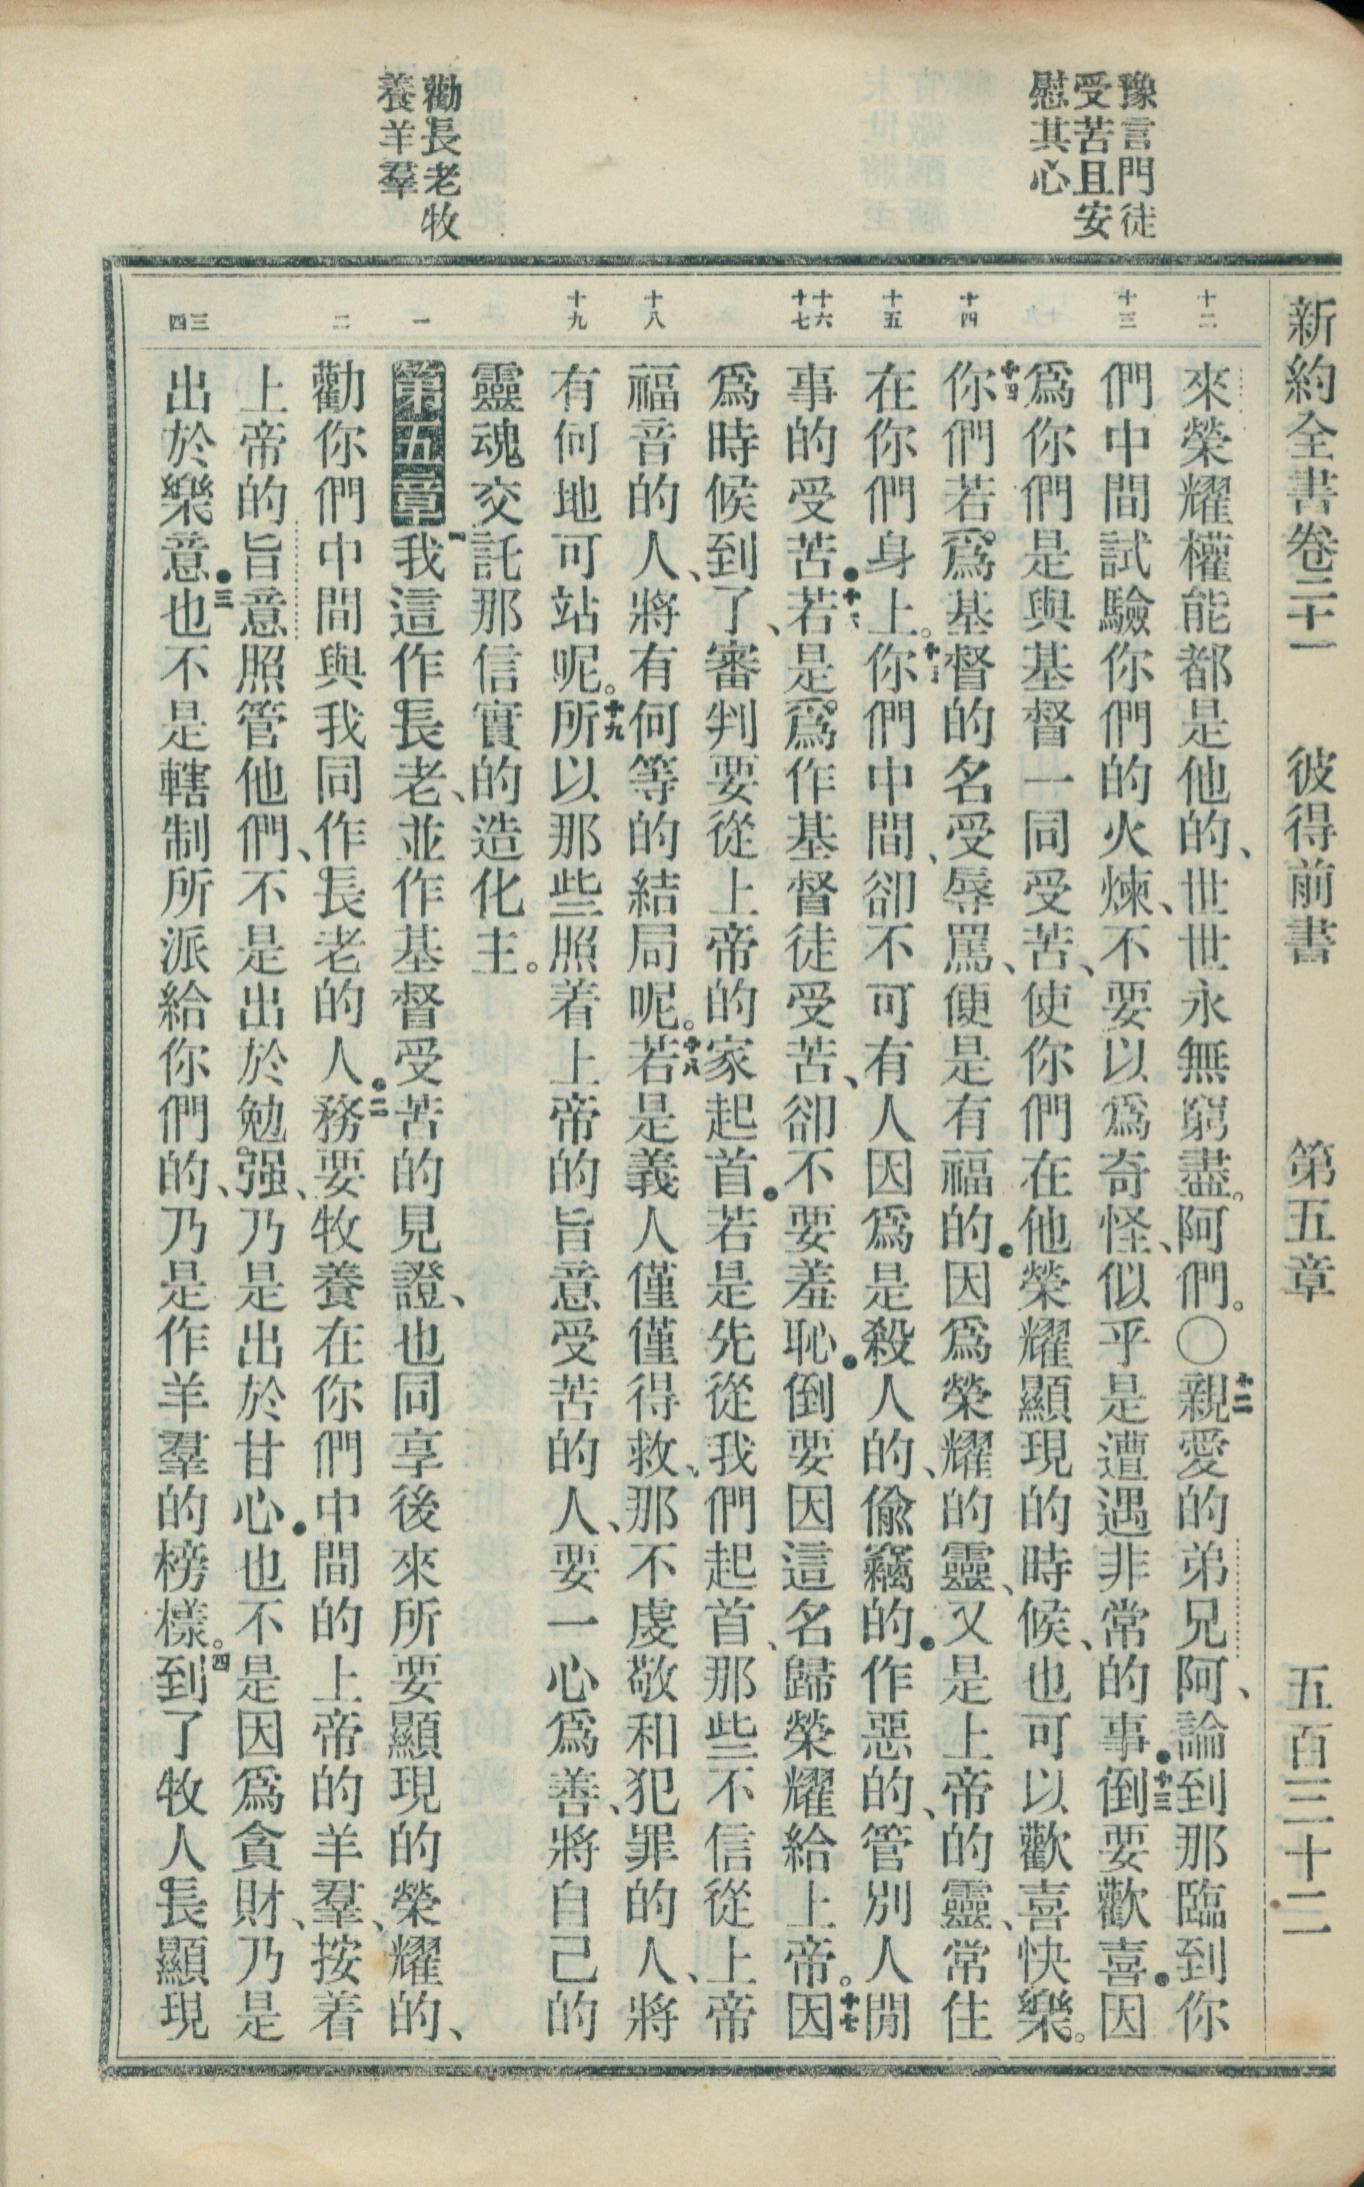 新約全書卷二十一 彼得前書 第五章 五百三十二
豫言門徒
受苦且安
慰其心
勸長老牧
養羊羣
十二
十三
十四
十五
十六
十七
十八
十九
一
二
三
四
來榮耀權能都是他的、世世永無窮盡。阿們。〇十二親愛的弟兄阿、論到那臨到你
們中間試驗你們的火煉、不要以爲奇怪、似乎是遭遇非常的事•十三倒要歡喜•因
爲你們是與基督一同受苦、使你們在他榮耀顯現的時候、也可以歡喜快樂。
十四你們若爲基督的名受辱罵、便是有福的•因爲榮耀的靈、又是上帝的靈、常住
在你們身上。十五你們中間、卻不可有人因爲是殺人的、偸竊的•作惡的、管別人閒
事的受苦•十六若是爲作基督徒受苦、卻不要羞恥•倒要因這名歸榮耀給上帝。十七因
爲時候到了、審判要從上帝的家起首•若是先從我們起首、那些不信從上帝
福音的人、將有何等的結局呢。十八若是義人僅僅得救、那不虔敬和犯罪的人、將
有何地可站呢。十九所以那些照着上帝的旨意受苦的人、要一心爲善、將自己的
靈魂交託那信實的造化主。
第五章 一我這作長老、並作基督受苦的見證、也同享後來所要顯現的榮耀的、
勸你們中間與我同作長老的人•二務要牧養在你們中間的上帝的羊羣、按着
上帝的旨意照管他們、不是出於勉强、乃是出於甘心•也不是因爲貪財、乃是
出於樂意•三也不是轄制所派給你們的、乃是作羊羣的榜樣。四到了牧人長顯現